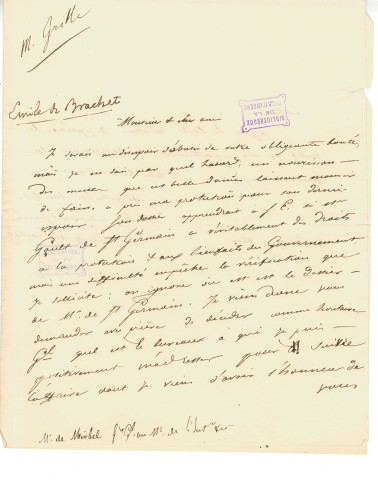 M. Grille
Emile de Brachet
Monsieur et cher ami
BIBLIOTHEQUE
DE LA
Je serais au désespoir d'abuser de votre obligeante bonté,
mais je ne sais par quel hasard, un nourrisson
des muses que ces belles dames laissent mourir
de faim, a pris ma protection pour son dernier
espoir. Son Exce apprendrait à S. E. si Mr
Gault de St Germain a véritablement des droits
à la protection & aux bienfaits du Gouvernement
mais une difficulté empêche la vérification que
je sollicite : on ignore où est le dossier
de Mr. de St Germain. Je viens donc vous
demander de décider comme
Gal quel est le bureau à qui je puis
positivement m'adresser pour suivre
l'affaire dont je viens d'avoir l'honneur de
vous
Mr. de au Mre. de l'Intérieur